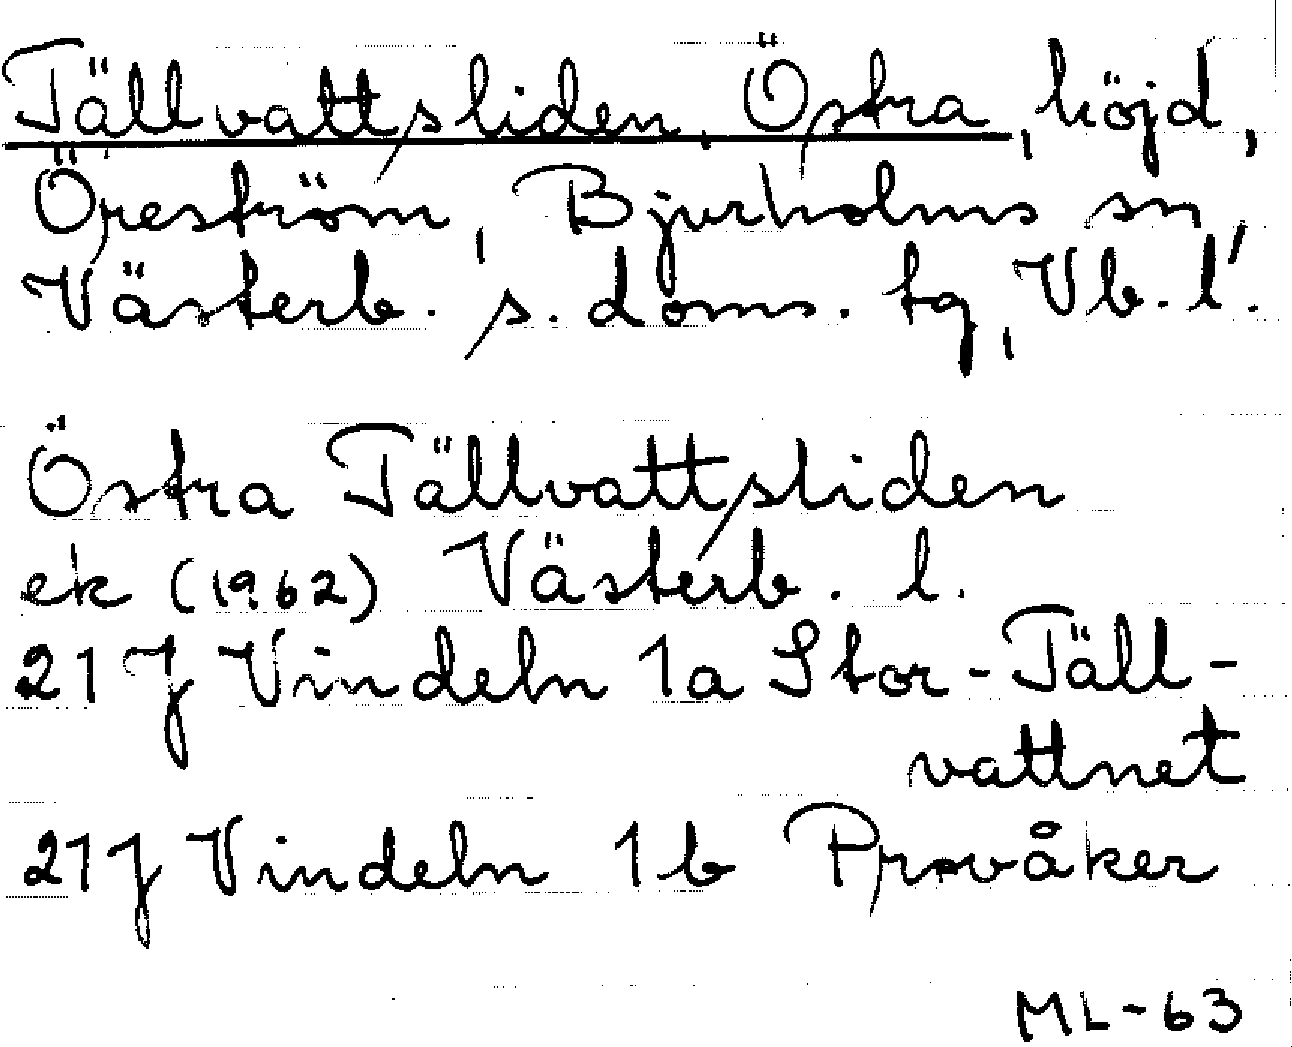 Tällvattsliden, Östra, höjd,
Öreström, Bjurholms sn,
Västerb. s. doms. tg, Vb. l.
Östra Tällvattsliden
ek (1962) Västerb. l.
21 J Vindeln 1a Stor-Täll-
vattnet
21 J Vindeln 1b Provåker
ML-63